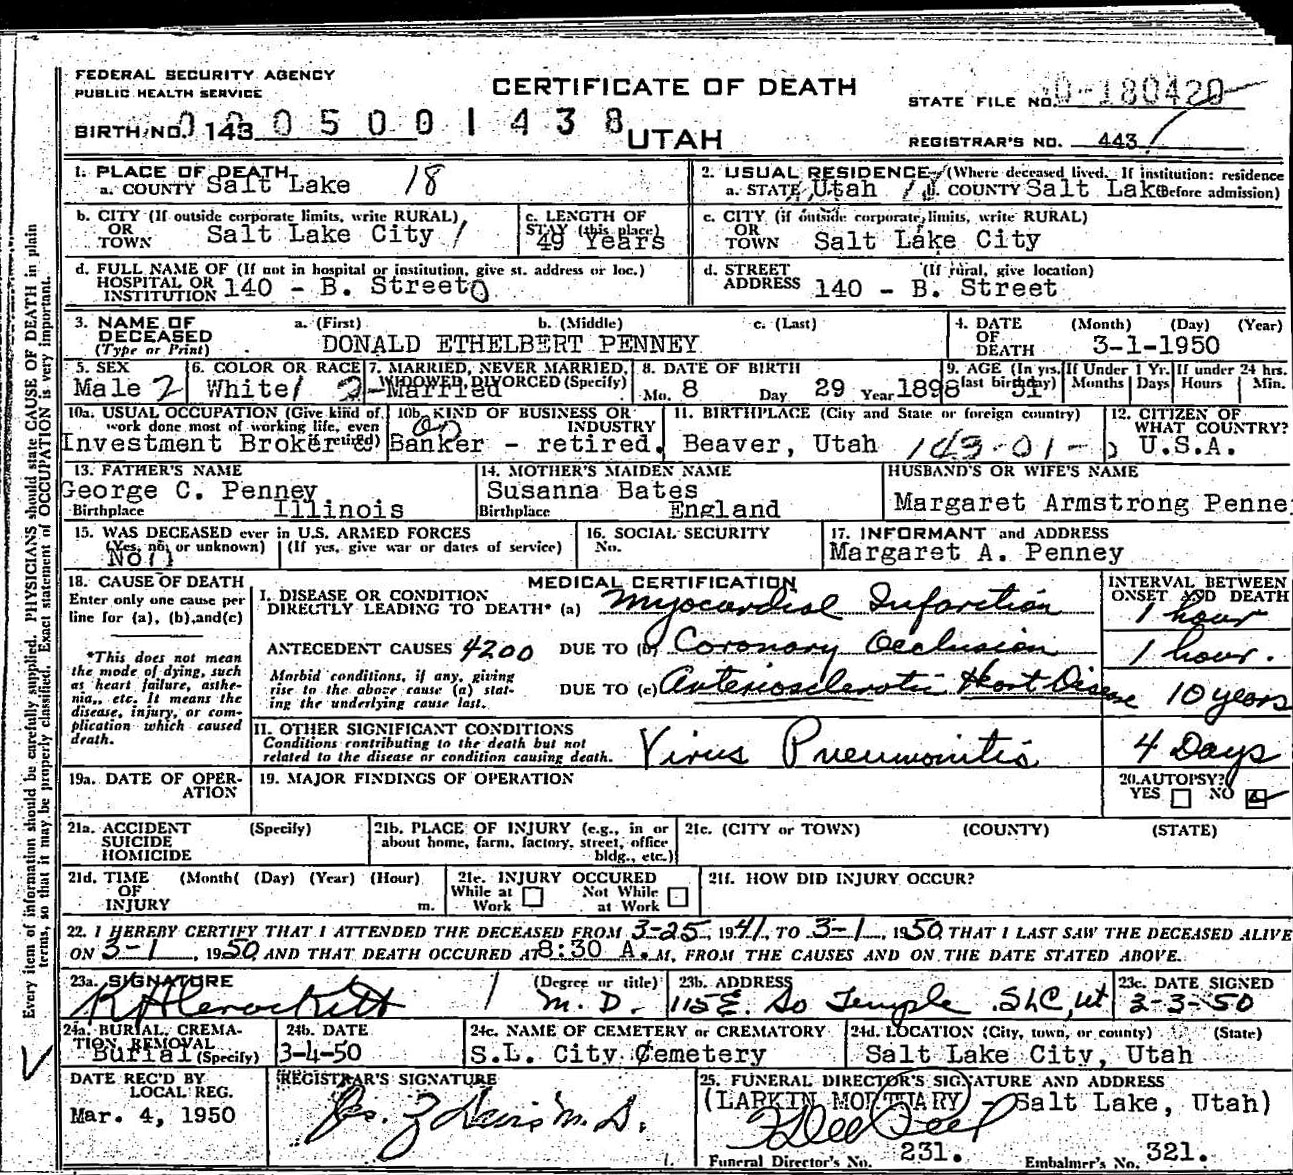 FEDERAL SECURITY AGENCY
PUBLIC HEALTH SERVICE
CERTIFICATE OF DEATH
UTAH
STATE FILE NO. 0-180420
BIRTH NO. 143 005001438
REGISTRAR'S NO. 443
1. PLACE OF DEATH
a. COUNTY Salt Lake 18
2. USUAL RESIDENCE (Where deceased lived. If institution: residence
a. STATE Utah b. COUNTY Salt Lake before admission)
b. CITY (If outside corporate limits, write RURAL)
OR
TOWN Salt Lake City
c. LENGTH OF
STAY (this place)
49 Years
c. CITY (if outside corporate limits, write RURAL)
OR
TOWN Salt Lake City
d. FULL NAME OF (If not in hospital or institution, give st. address or loc.)
HOSPITAL OR
INSTITUTION 140 - B. Street
d. STREET (If rural, give location)
ADDRESS 140 - B. Street
3. NAME OF
DECEASED
(Type or Print)
a. (First) b. (Middle) c. (Last)
DONALD ETHELBERT PENNEY
4. DATE (Month) (Day) (Year)
OF
DEATH 3-1-1950
5. SEX
Male 2
6. COLOR OR RACE
White 1
7. MARRIED, NEVER MARRIED,
WIDOWED, DIVORCED (Specify)
2-Married
8. DATE OF BIRTH
Mo. 8 Day 29 Year 1898
9. AGE (In yrs.
last birthday) 51
If Under 1 Yr.
Months Days
If under 24 hrs.
Hours Min.
10a. USUAL OCCUPATION (Give kind of
work done most of working life, even
if retired)
Investment Broker &
10b. KIND OF BUSINESS OR
INDUSTRY
Banker - retired.
11. BIRTHPLACE (City and State or foreign country)
Beaver, Utah 143-01-
12. CITIZEN OF
WHAT COUNTRY?
U.S.A.
13. FATHER'S NAME
George C. Penney
Birthplace Illinois
14. MOTHER'S MAIDEN NAME
Susanna Bates
Birthplace England
HUSBAND'S OR WIFE'S NAME
Margaret Armstrong Penne
15. WAS DECEASED ever in U.S. ARMED FORCES
(Yes, no, or unknown) (If yes, give war or dates of service)
No
16. SOCIAL SECURITY
No.
17. INFORMANT and ADDRESS
Margaret A. Penney
18. CAUSE OF DEATH
Enter only one cause per
line for (a), (b), and (c)
*This does not mean
the mode of dying, such
as heart failure, asthe-
nia, etc. It means the
disease, injury, or com-
plication which caused
death.
MEDICAL CERTIFICATION
I. DISEASE OR CONDITION
DIRECTLY LEADING TO DEATH* (a) Myocardial Infarction
ANTECEDENT CAUSES 4200 DUE TO (b) Coronary Occlusion
Morbid conditions, if any, giving
rise to the above cause (a) stat-
ing the underlying cause last.
DUE TO (c) Arteriosclerotic Heart Disease
INTERVAL BETWEEN
ONSET AND DEATH
1 hour
1 hour.
10 years
II. OTHER SIGNIFICANT CONDITIONS
Conditions contributing to the death but not
related to the disease or condition causing death.
Virus Pneumonitis 4 Days
19a. DATE OF OPER-
ATION
19. MAJOR FINDINGS OF OPERATION
20. AUTOPSY?
YES NO
21a. ACCIDENT (Specify)
SUICIDE
HOMICIDE
21b. PLACE OF INJURY (e.g., in or
about home, farm, factory, street, office
bldg., etc.)
21c. (CITY or TOWN) (COUNTY) (STATE)
21d. TIME (Month( (Day) (Year) (Hour)
OF
INJURY m.
21e. INJURY OCCURED
While at Work Not While at Work
21f. HOW DID INJURY OCCUR?
22. I HEREBY CERTIFY THAT I ATTENDED THE DECEASED FROM 3-25, 1941, TO 3-1, 1950, THAT I LAST SAW THE DECEASED ALIVE
ON 3-1, 1950 AND THAT DEATH OCCURED AT 8:30 A.M, FROM THE CAUSES AND ON THE DATE STATED ABOVE.
23a. SIGNATURE (Degree or title)
M.D.
23b. ADDRESS
115 E. So Temple SLC, Ut
23c. DATE SIGNED
3-3-50
24a. BURIAL, CREMA-
TION, REMOVAL
(Specify)
Burial
24b. DATE
3-4-50
24c. NAME OF CEMETERY or CREMATORY
S.L. City Cemetery
24d. LOCATION (City, town, or county) (State)
Salt Lake City, Utah
DATE REC'D BY
LOCAL REG.
Mar. 4, 1950
REGISTRAR'S SIGNATURE
M.D.
25. FUNERAL DIRECTOR'S SIGNATURE AND ADDRESS
(LARKIN MORTUARY - Salt Lake, Utah)
Funeral Director's No. 231. Embalmer's No. 321.
Every item of information should be carefully supplied. PHYSICIANS should state CAUSE OF DEATH in plain
terms, so that it may be properly classified. Exact statement of OCCUPATION is very important.